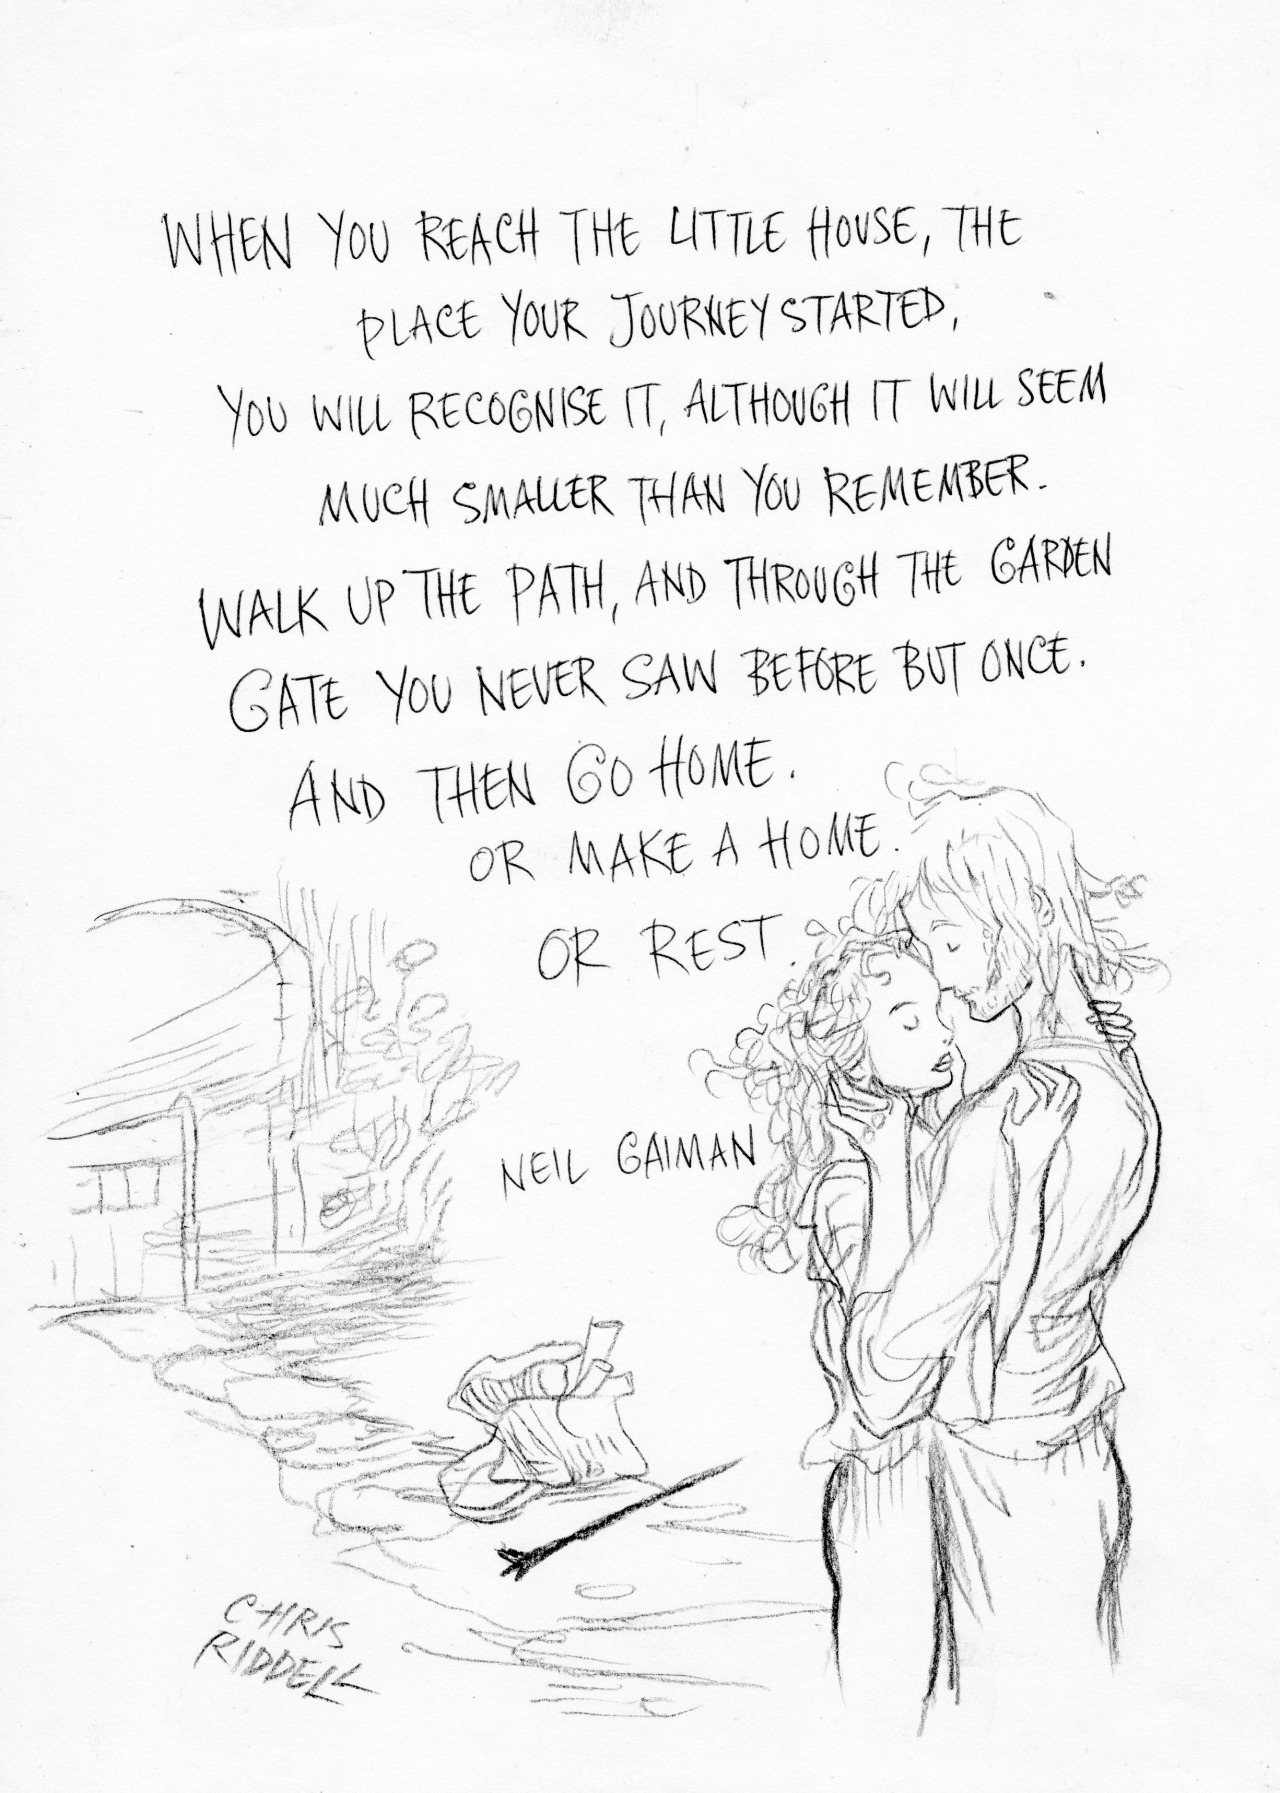 WHEN YOU REACH THE LITTLE HOUSE, THE
PLACE YOUR JOURNEY STARTED,
YOU WILL RECOGNISE IT, ALTHOUGH IT WILL SEEM
MUCH SMALLER THAN YOU REMEMBER.
WALK UP THE PATH, AND THROUGH THE GARDEN
GATE YOU NEVER SAW BEFORE BUT ONCE.
AND THEN GO HOME.
OR MAKE A HOME.
OR REST.
NEIL GAIMAN
CHRIS
RIDDELL